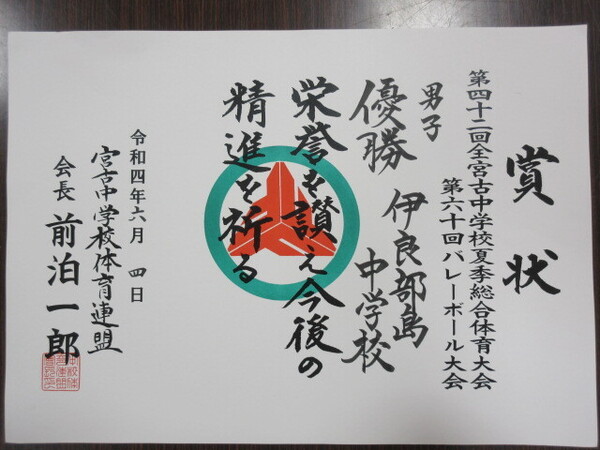 賞状
第四十二回全宮古中学校夏季総合体育大会
第六十回バレーボール大会
男子
優勝 伊良部島
中学校
栄誉を讃え今後の
精進を祈る
令和四年六月 四日
宮古中学校体育連盟
会長 前泊一郎